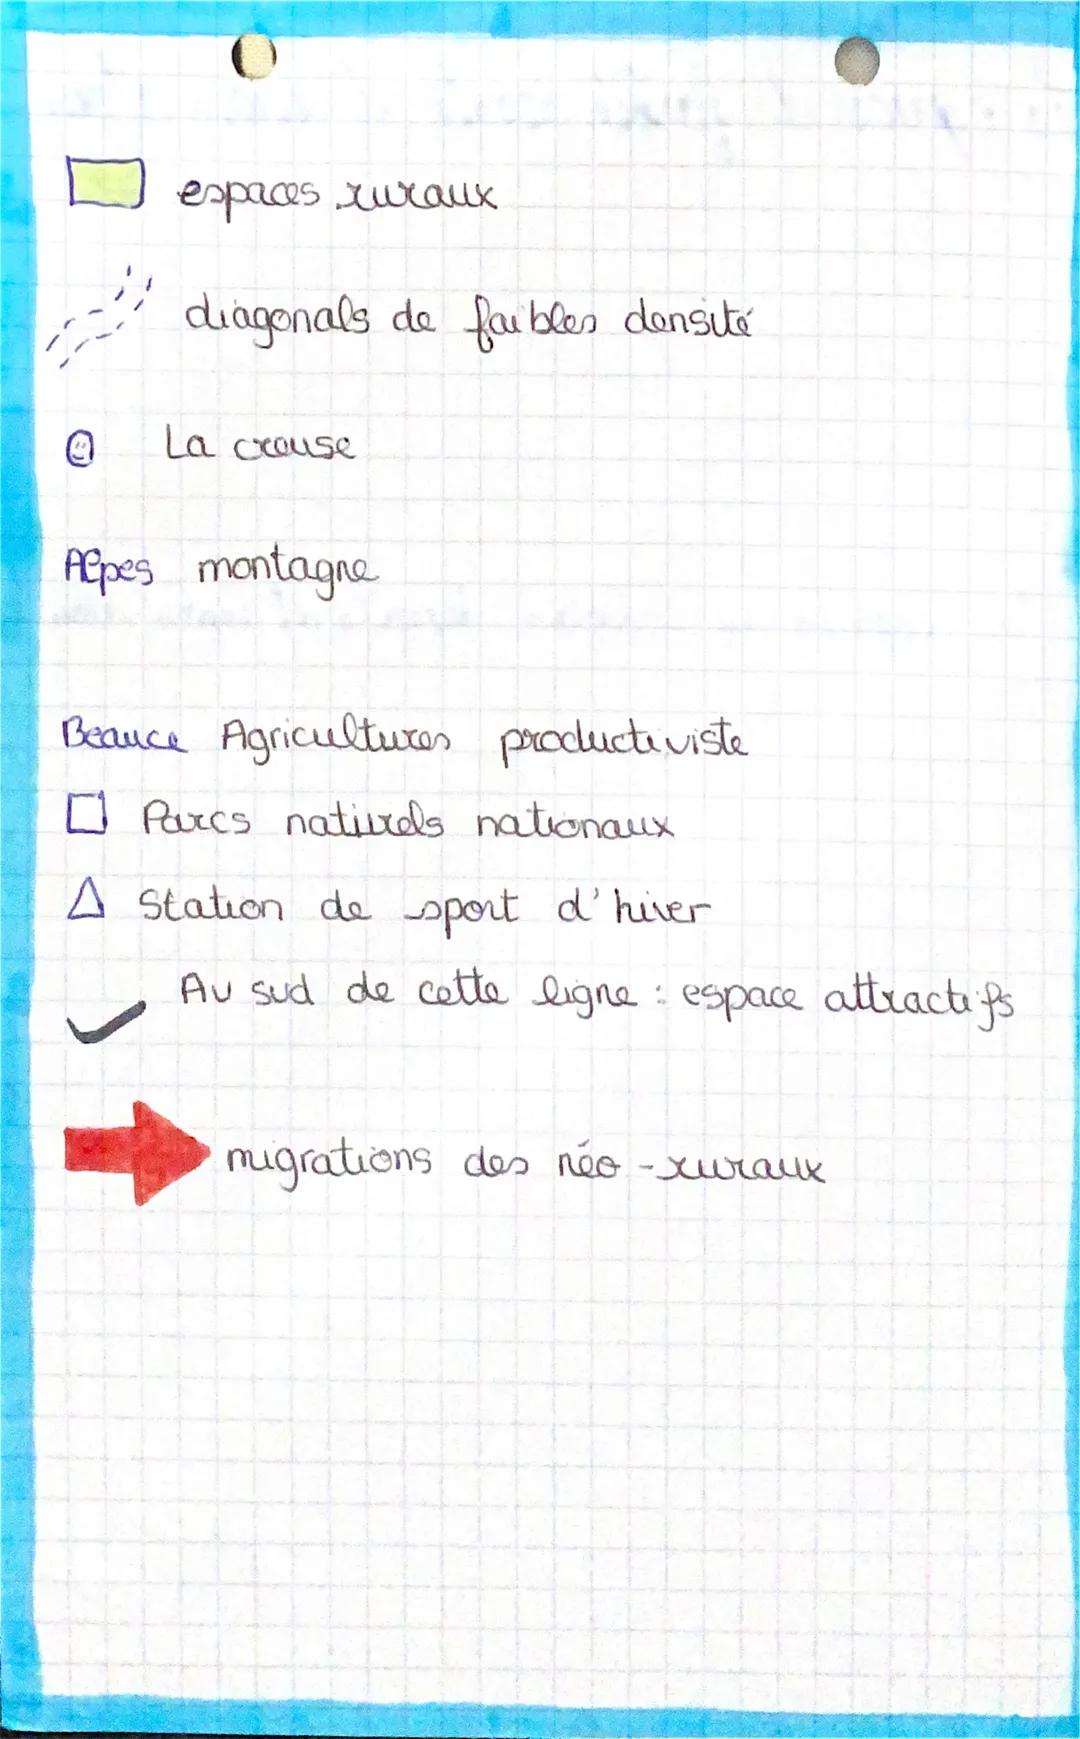 espaces ruraux
diagonals de faibles densité
La creuse
Alpes montagne
Beauce Agricultures productiviste
Parcs naturels nationaux
Station de sport d'hiver
Au sud de cette ligne : espace attractifs
migrations des néo-ruraux